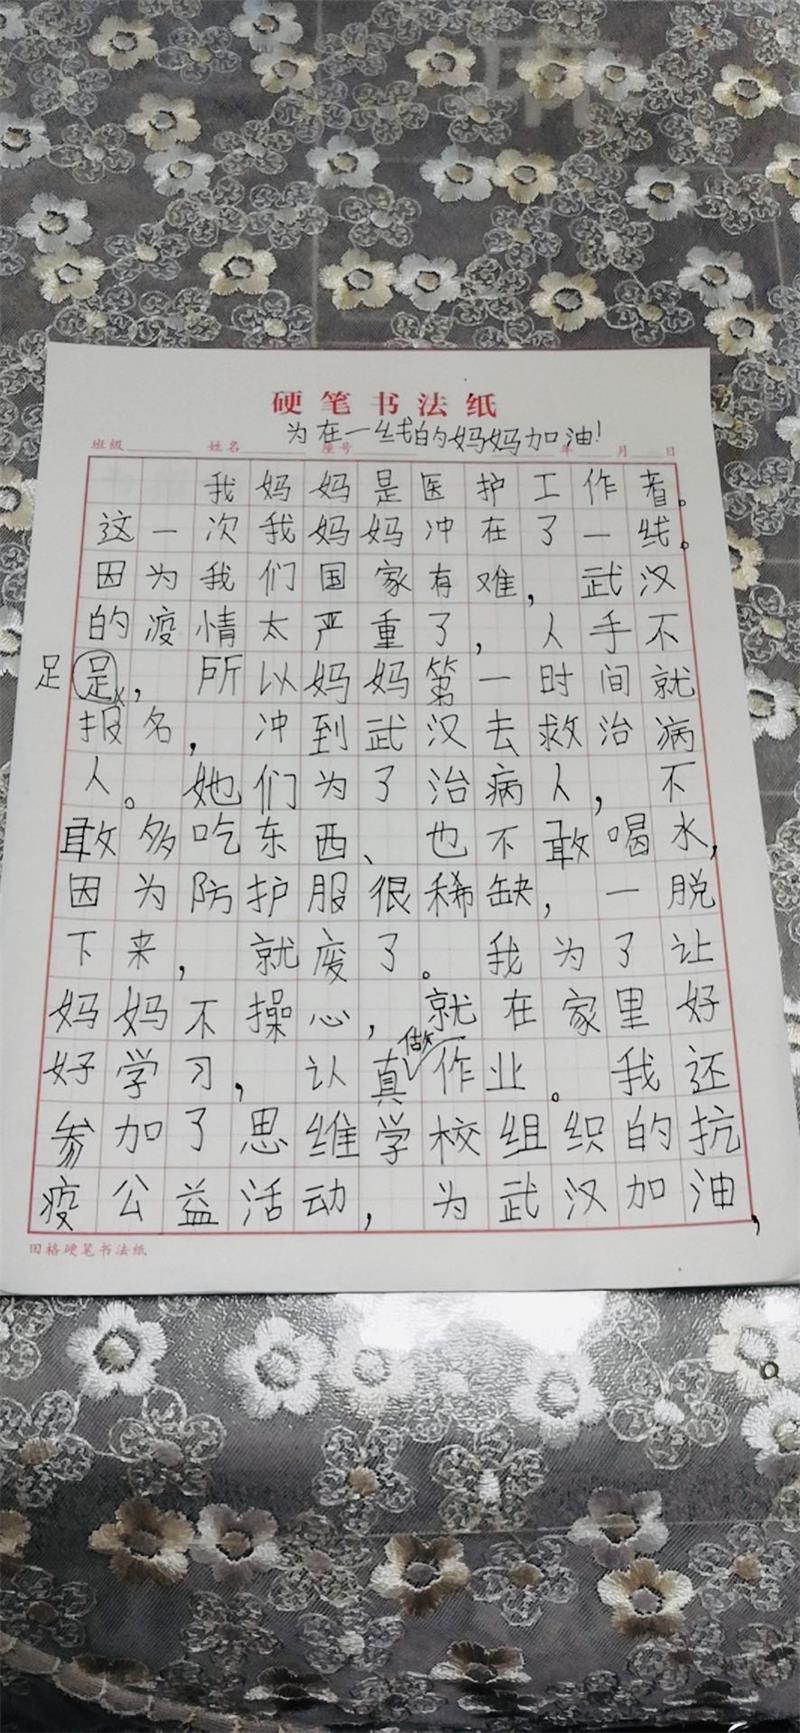 硬笔书法纸
为在一线的妈妈加油!
班级 姓名 座号 年 月 日
我妈妈是医护工作者。
这一次我妈妈冲在了一线。
因为我们国家有难，武汉
的疫情太严重了，人手不
足 是，所以妈妈第一时间就
报名，冲到武汉去救治病
人。她们为了治病人，不
敢多吃东西、也不敢喝水，
因为防护服很稀缺，一脱
下来，就废了。我为了让
妈妈不操心，就在家里好
好学习，认真做作业。我还
参加了思维学校组织的抗
疫公益活动，为武汉加油，
田格硬笔书法纸